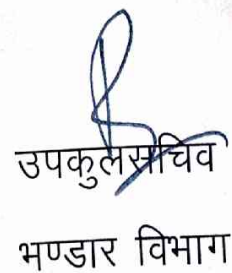 उपकुलसचिव
भण्डार विभाग